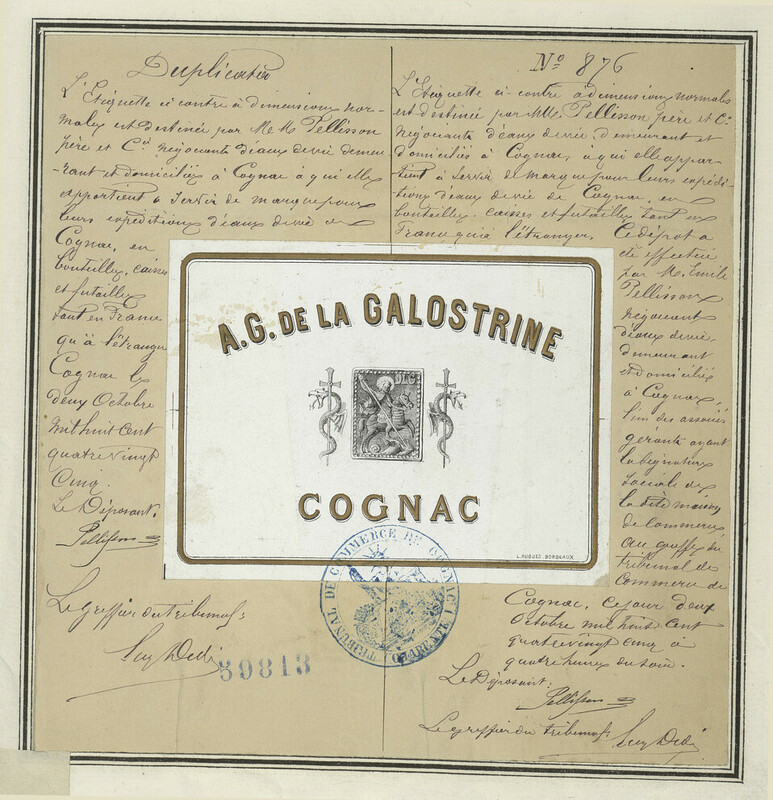 Duplicata
L'Etiquette ci contre à dimensions nor-
males est destinée par MM Pellisson
père et Cie négociants d'eaux de vie demeu
-rant et domiciliés à Cognac à qui elle
appartient à servir de marque pour
leurs expéditions d'eaux de vie de
Cognac, en
bouteilles, caisses
et futailles
tant en France
qu'à l'étranger
Cognac le
deux Octobre
mil huit cent
quatre vingt
cinq.
Le Déposant.
Pellisson
Le greffier du tribunal:
No 876
L'Etiquette ci-contre à dimensions normales
est destinée par MM. Pellisson père et Cie
négociants d'eaux de vie, demeurant et
domiciliés à Cognac, à qui elle appar-
tient à servir de marque pour leurs expédi-
tions d'eaux de vie de Cognac, en
bouteilles, caisses et futailles tant en
France qu'à l'étranger. Ce dépôt a
été effectué
par M. Emile
Pellisson
négociant
d'eaux de vie
demeurant
et domicilié
à Cognac,
l'un des associés
gérants ayant
la signature
sociale de
la dite maison
de Commerce,
au greffe du
tribunal de
Commerce de
Cognac, ce jour deux
Octobre mil huit cent
quatre vingt cinq à
quatre heures du soir.
Le Déposant:
Pellisson
Le greffier du tribunal
A.G. DE LA GALOSTRINE
COGNAC
L. HUGUES. BORDEAUX
TRIBUNAL DE COMMERCE DE COGNAC (CHARENTE)
39813